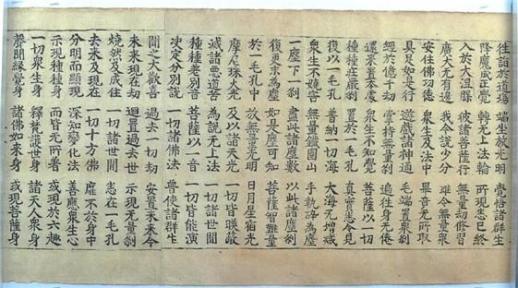 往詣於道場 端坐放光明 覺悟諸群生
降魔成正覺 轉無上法輪 所現悉已終
入於大涅槃 彼諸菩薩行 無量劫修習
廣大無有邊 我今說少分 雖令無量眾
安住佛功德 眾生及法中 畢竟無所取
具足如是行 遊戲諸神通 毛端置眾剎
經於億千劫 掌持無量剎 遍往身無倦
還來置本處 眾生不知覺 菩薩以一切
種種莊嚴剎 置於一毛孔 真實悉令見
復以一毛孔 普納一切海 大海無增減
眾生不嬈害 無量鐵圍山 手執碎為塵
一塵下一剎 盡此諸塵數 以此諸塵剎
復更末為塵 如是塵可知 菩薩智難量
於一毛孔中 放無量光明 日月星宿光
摩尼珠火光 及以諸天光 一切皆映蔽
滅諸惡道苦 為說無上法 一切諸世間
種種差別音 菩薩以一音 一切皆能演
決定分別說 一切諸佛法 普使諸群生
聞之大歡喜 過去一切劫 安置未來今
未來現在劫 迴置過去世 示現無量剎
燒然及成住 一切諸世間 悉在一毛孔
去來及現在 一切十方佛 靡不於身中
分明而顯現 深知變化法 善應眾生心
示現種種身 而皆無所著 或現於六趣
一切眾生身 釋梵護世身 諸天人眾身
聲聞緣覺身 諸佛如來身 或現菩薩身